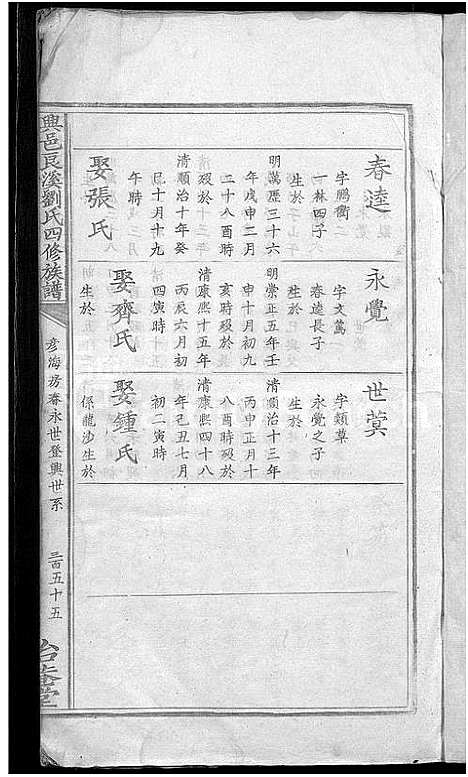 春逵
字鵬衢
一林四子
生於
明萬歷三十六
年戊申二月
二十八酉時
清順治十年癸
巳十月十九
午時
娶張氏
永覺
字文篤
春逵長子
生於
明崇正五年壬
申十月初九
亥時歿於
清康熙十五年
丙辰六月初
四寅時
娶齊氏
生於
世蓂
字頖草
永覺之子
生於
清順治十三年
丙申正月十
八酉時歿於
清康熙四十八
年己丑七月
初二寅時
娶鍾氏
係龍沙生於
興邑良溪劉氏四修族譜
彦海房春永世登興世系
三百五十五